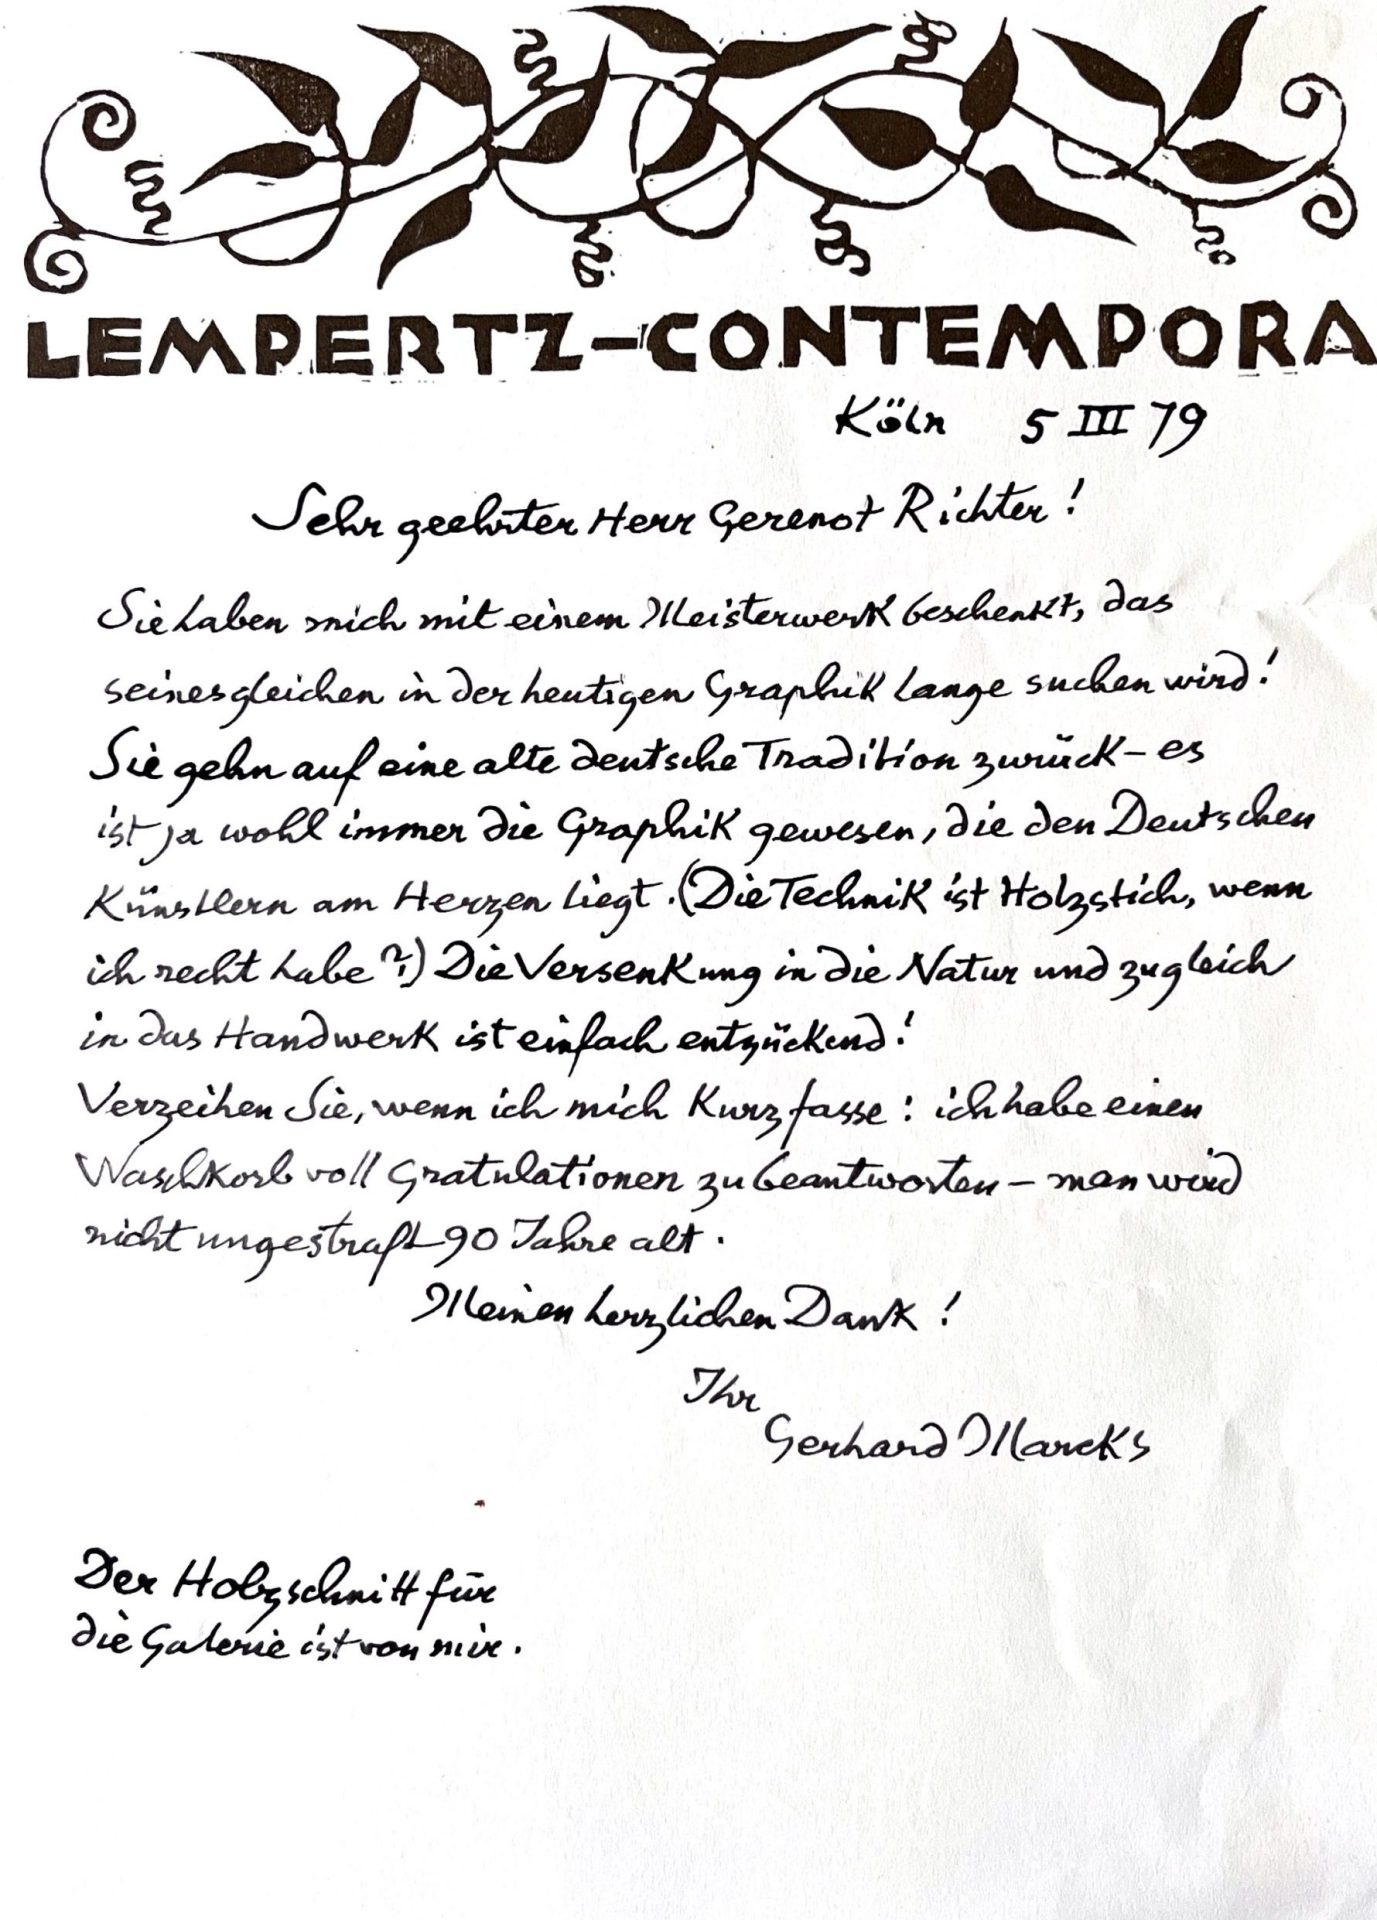 LEMPERTZ-CONTEMPORA
Köln 5 III 79
Sehr geehrter Herr Gerenot Richter!
Sie haben mich mit einem Meisterwerk beschenkt, das
seinesgleichen in der heutigen Graphik lange suchen wird!
Sie gehn auf eine alte deutsche Tradition zurück – es
ist ja wohl immer die Graphik gewesen, die den Deutschen
Künstlern am Herzen liegt. (Die Technik ist Holzstich, wenn
ich recht habe?) Die Versenkung in die Natur und zugleich
in das Handwerk ist einfach entzückend!
Verzeihen Sie, wenn ich mich kurz fasse: ich habe einen
Waschkorb voll Gratulationen zu beantworten – man wird
nicht ungestraft 90 Jahre alt.
Meinen herzlichen Dank!
Ihr
Gerhard Marcks
Der Holzschnitt für
die Galerie ist von mir.